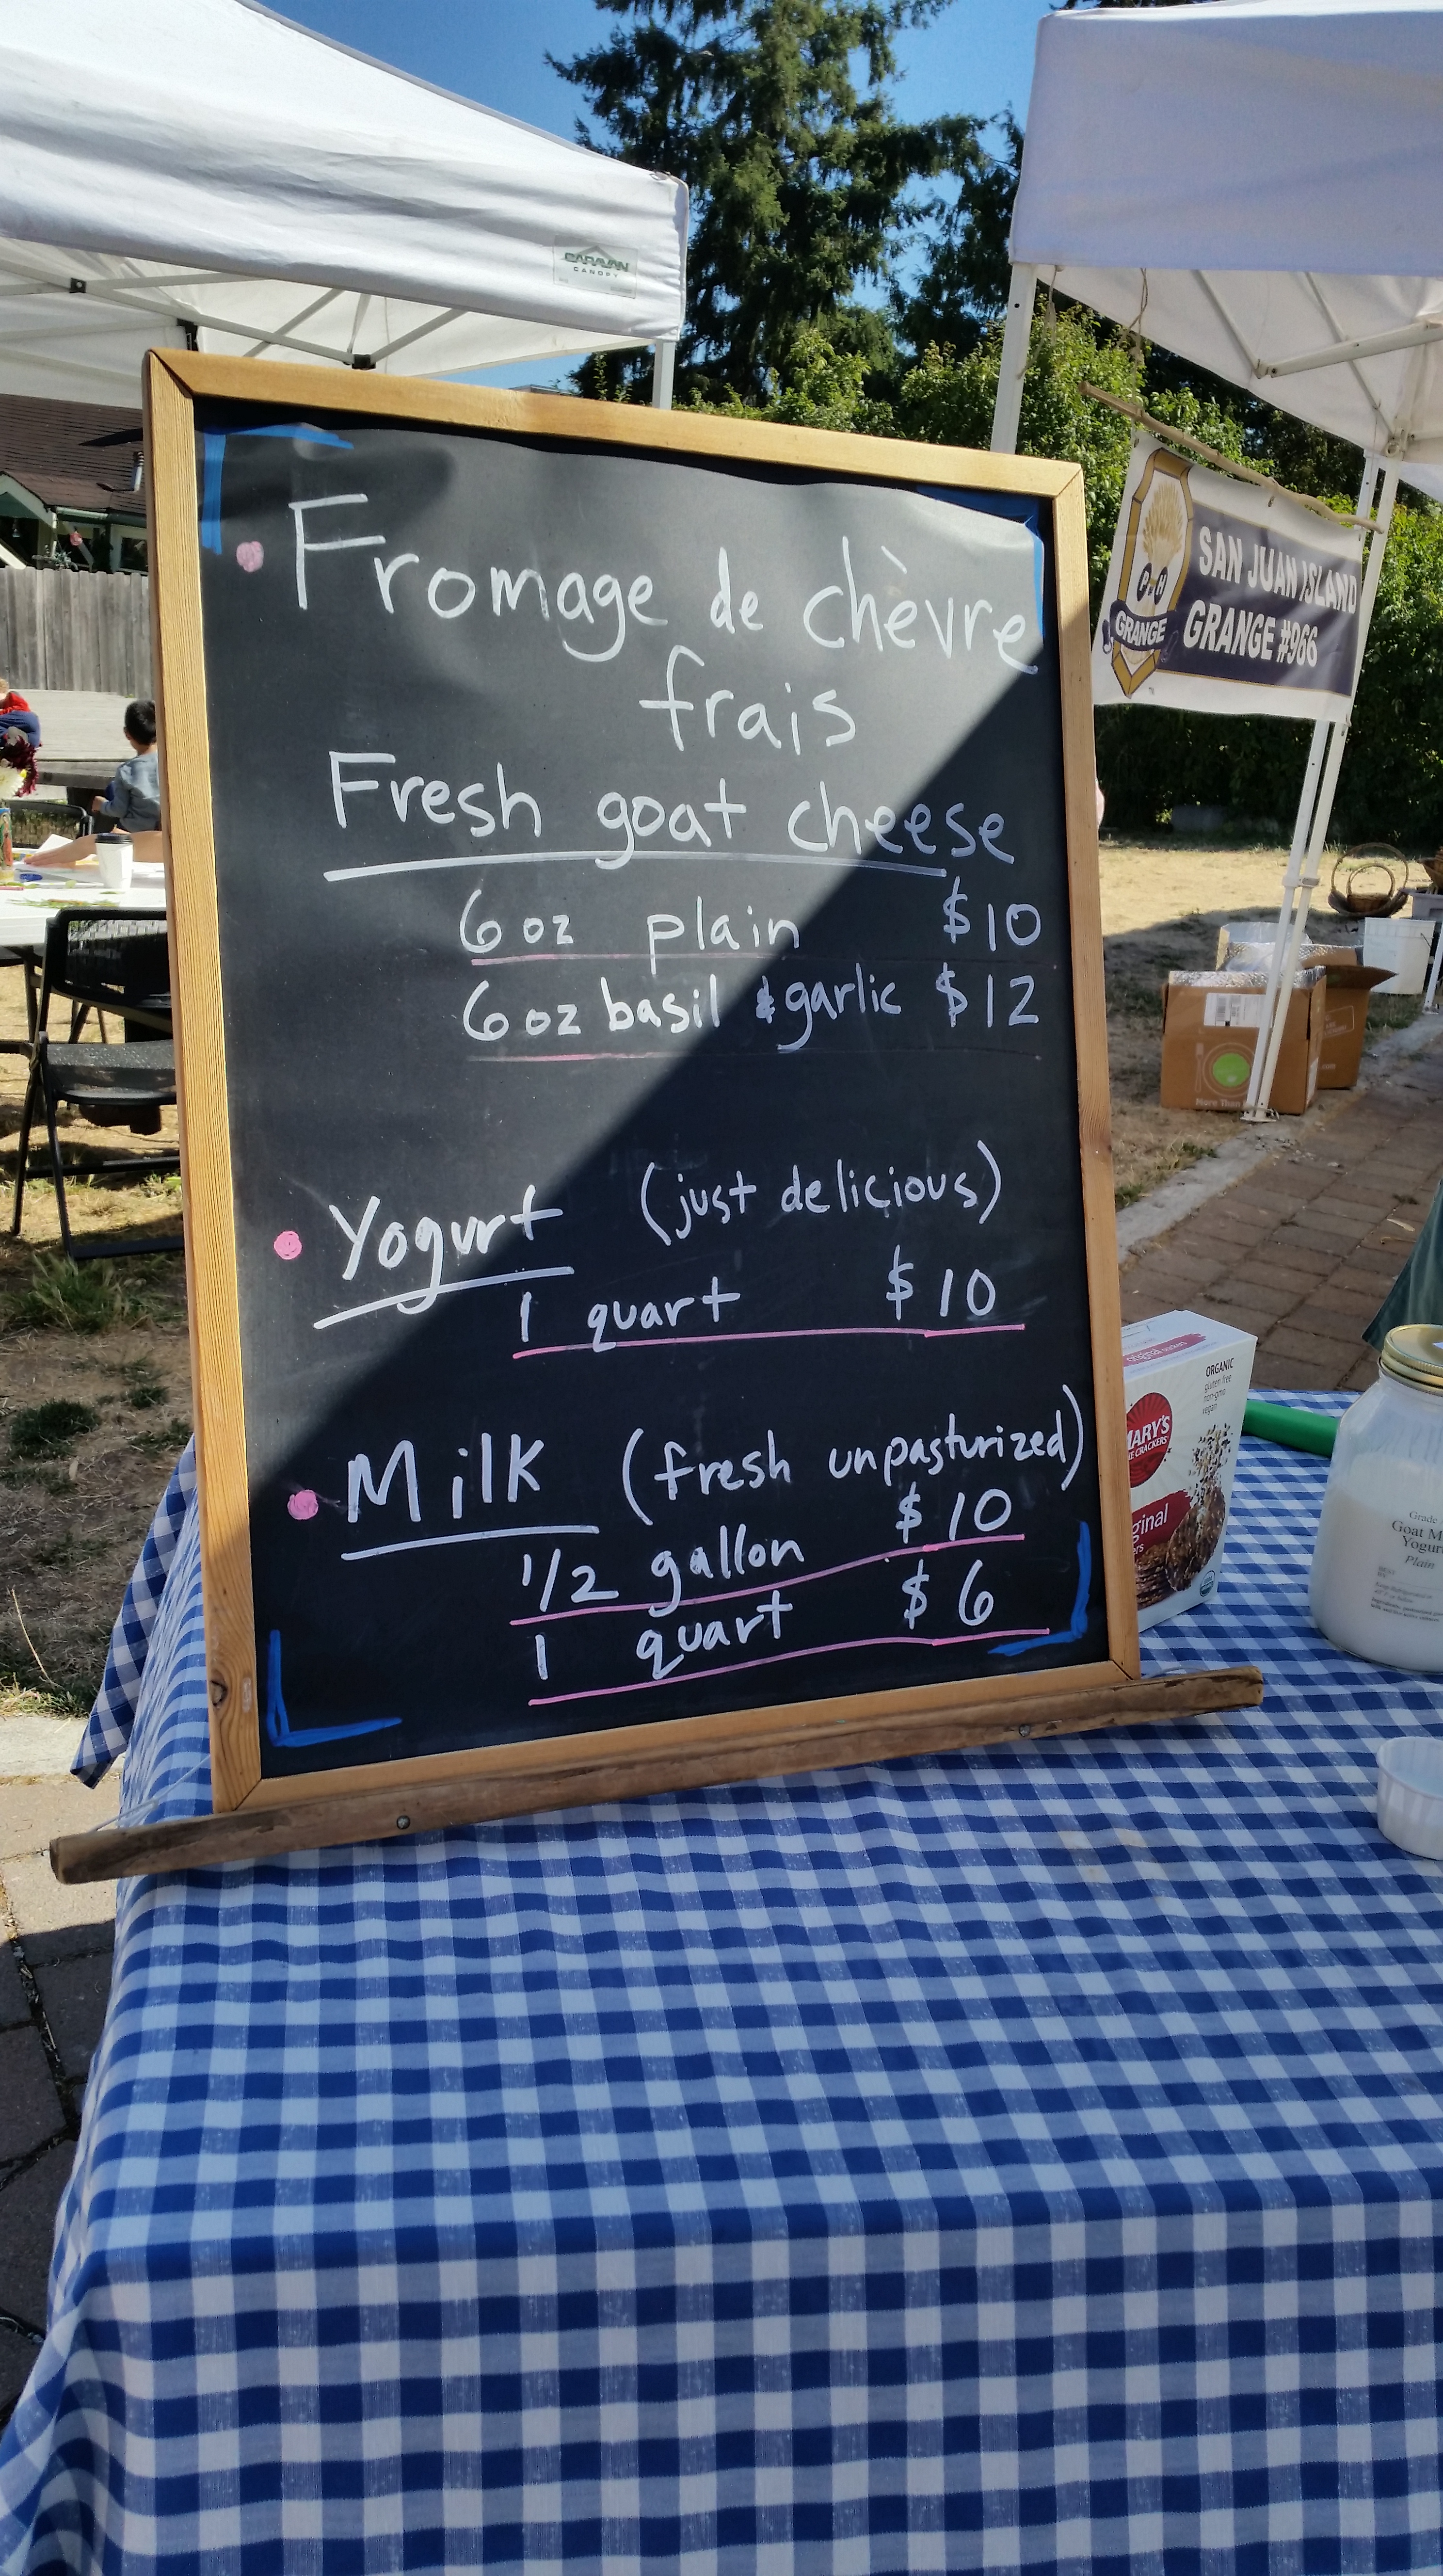 CARAVAN
CANOPY
Fromage de chèvre
frais
Fresh goat cheese
6 oz plain $10
6 oz basil & garlic $12
Yogurt (just delicious)
1 quart $10
Milk (fresh unpasturized)
1/2 gallon $10
1 quart $6
SAN JUAN ISLAND
GRANGE #966
P of H
GRANGE
More Than
ORGANIC
gluten free
non-gmo
vegan
MARY'S
CRACKERS
ginal
Grade
Goat M
Yogur
Plain